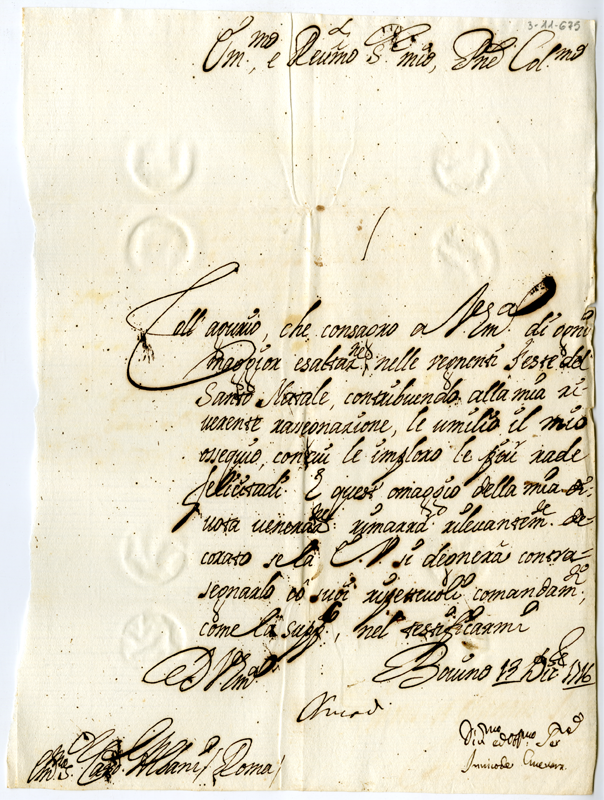 3-11-675
Em.mo, e Reu.mo S.r mio, Pñe Col.mo
all' agurio, che consagro a V. Em. di ogni
maggior esaltaz.ne nelle regnenti Feste del
Santo Natale, contribuendo alla mia ri
verente rassegnazione, le umilio il mio
ossequio, con cui le imploro le più rade
felicitadi. E quest' omaggio della mia di=
vota veneraz.ne rimarrà rilevantem.te de=
corato se la E. V. si degnerà contra=
segnarlo co' suoi riveritevoli comandam.ti,
come la supp.o, nel testificarmi
D V. Em.a Bovino 19 Dic.e 1716
Em.o S. Card. Albani / Roma /